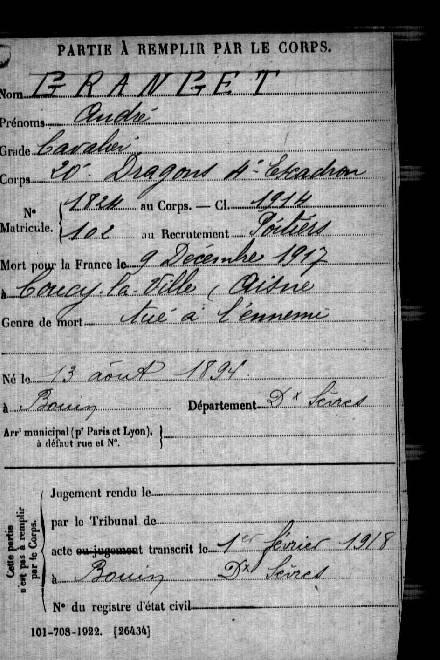 PARTIE À REMPLIR PAR LE CORPS.
Nom GRANGET
Prénoms André
Grade Cavalier
Corps 20e Dragons 4e Escadron
N° Matricule. { 1824 au Corps. — Cl. 1914
102 au Recrutement Poitiers
Mort pour la France le 9 Décembre 1917
à Coucy-la-Ville (Aisne
Genre de mort tué à l'ennemi
Né le 13 août 1894
à Bouin Département Dx Sèvres
Arrt municipal (pr Paris et Lyon), à défaut rue et N°. }
Cette partie n'est pas à remplir par le Corps.
Jugement rendu le
par le Tribunal de
acte ou jugement transcrit le 1er février 1918
à Bouin Dx Sèvres
N° du registre d'état civil
101-708-1922. [26434]